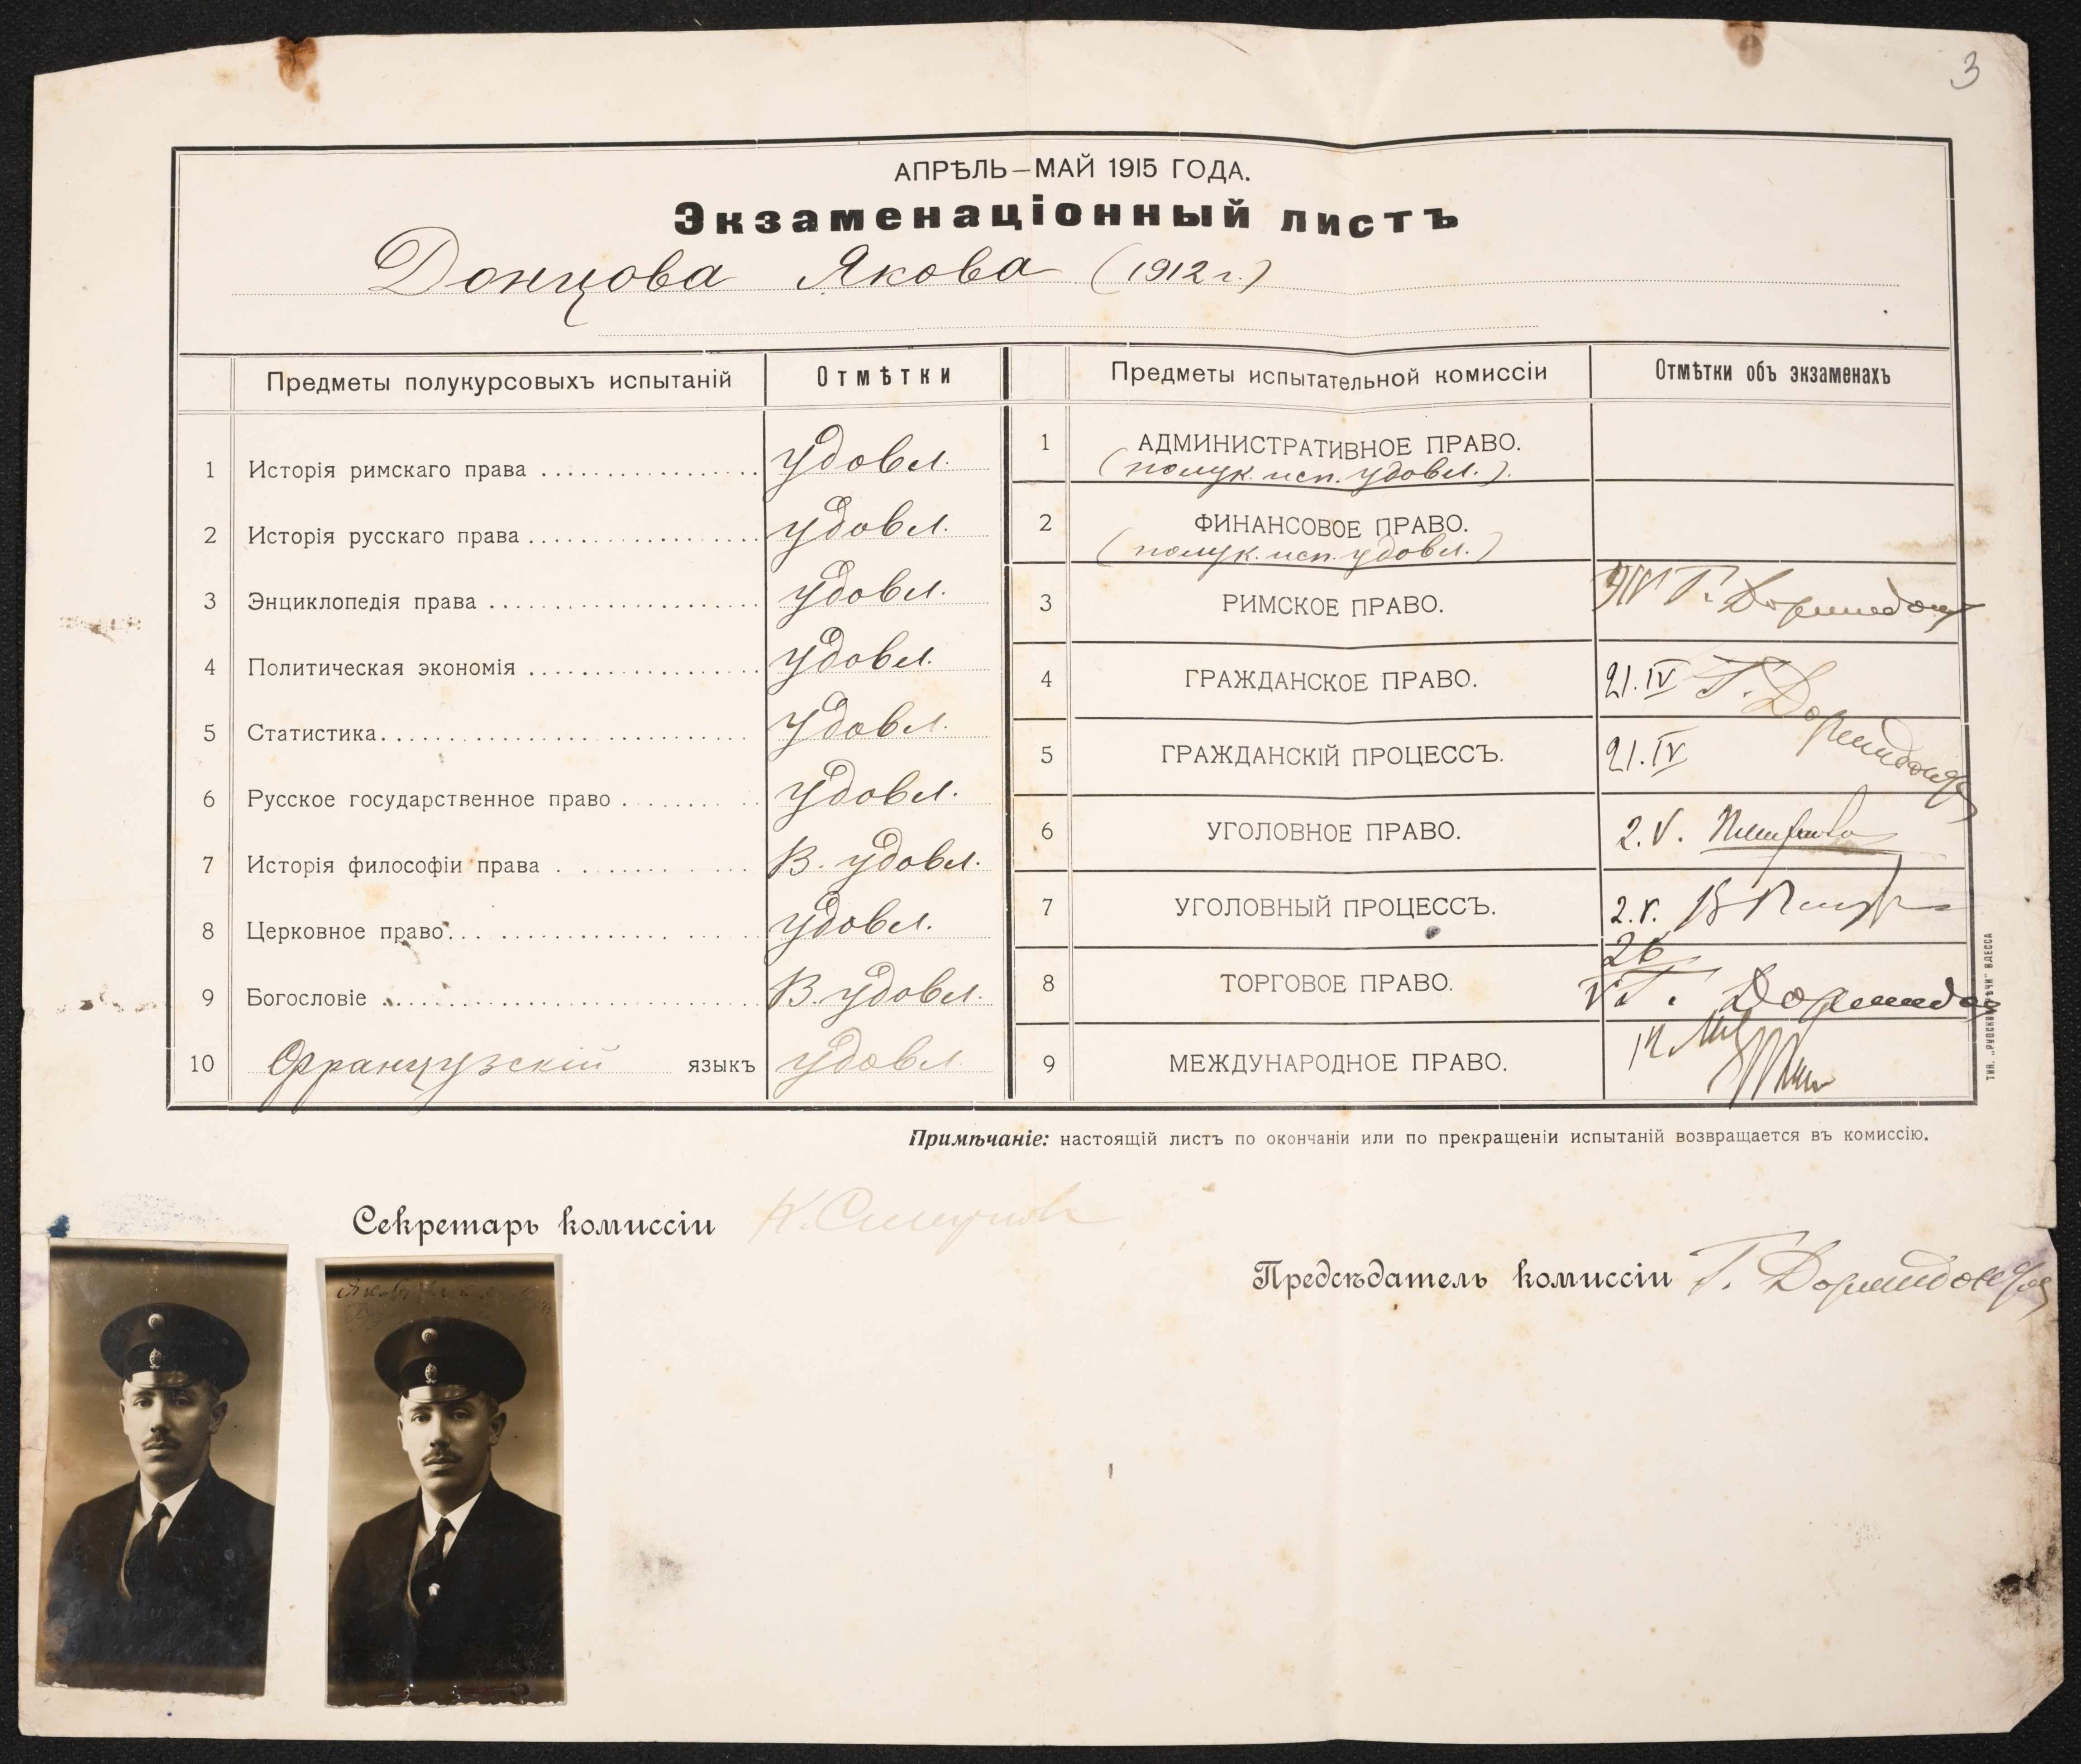 3
АПРѢЛЬ—МАЙ 1915 ГОДА.
Экзаменаціонный листъ
Донцова Якова (1912 г.)
Предметы полукурсовыхъ испытаній
Отмѣтки
1 Исторія римскаго права удовл.
2 Исторія русскаго права удовл.
3 Энциклопедія права удовл.
4 Политическая экономія удовл.
5 Статистика удовл.
6 Русское государственное право удовл.
7 Исторія философіи права В. удовл.
8 Церковное право удовл.
9 Богословіе В. удовл.
10 Французскій языкъ удовл.
Предметы испытательной комиссіи
Отмѣтки объ экзаменахъ
1 АДМИНИСТРАТИВНОЕ ПРАВО.
(полук. исп. удовл.).
2 ФИНАНСОВОЕ ПРАВО.
(полук. исп. удовл.)
3 РИМСКОЕ ПРАВО.
4 ГРАЖДАНСКОЕ ПРАВО. 21.IV Г. Дормидонтов
5 ГРАЖДАНСКІЙ ПРОЦЕССЪ. 21.IV
6 УГОЛОВНОЕ ПРАВО. 2.V.
7 УГОЛОВНЫЙ ПРОЦЕССЪ. 2.V.
8 ТОРГОВОЕ ПРАВО. 26 V
9 МЕЖДУНАРОДНОЕ ПРАВО.
ТИП. „РУССКОЙ РѢЧИ“ ОДЕССА
Примѣчаніе: настоящій листъ по окончаніи или по прекращеніи испытаній возвращается въ комиссію.
Секретарь комиссіи
Предсѣдатель комиссіи Г. Дормидонтов